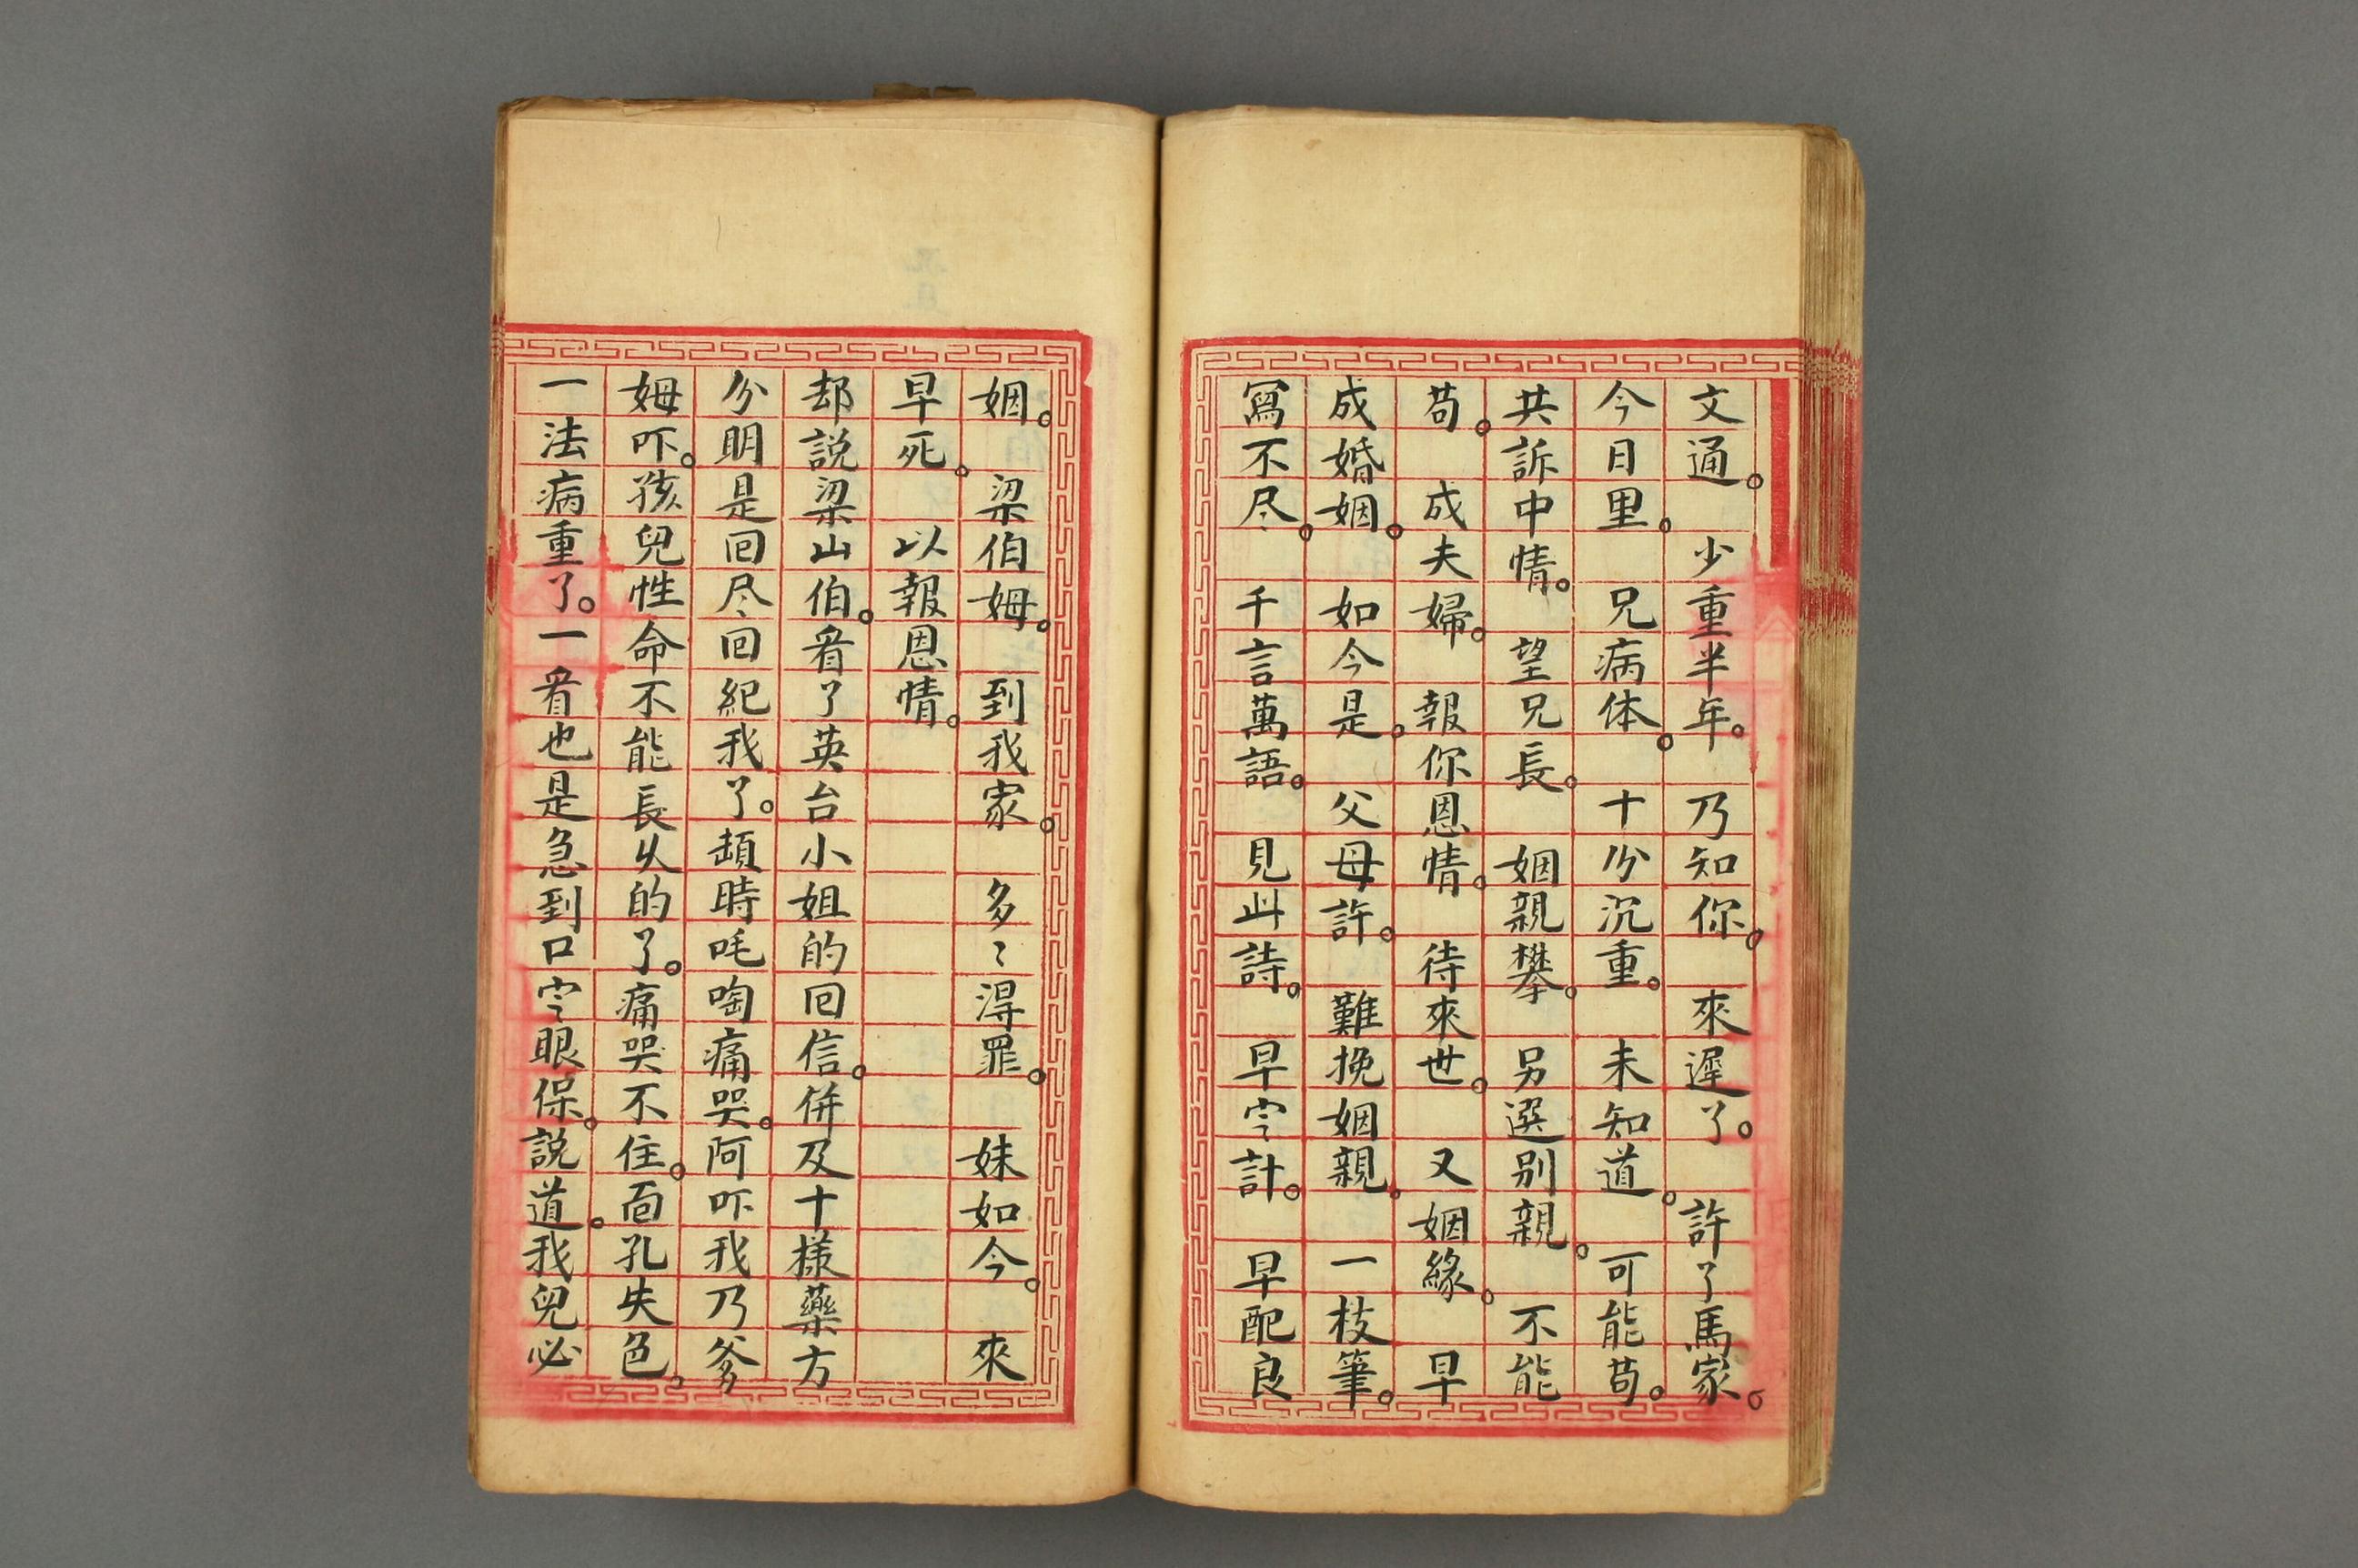 文通。少重半年。乃知你。來遲了。許了馬家。
今日里。兄病体。十分沉重。未知道。可能苟。
共訴中情。望兄長。姻親攀。另選别親。不能
苟。成夫婦。報你恩情。待來世。又姻緣。早
成婚姻。如今是。父母許。難挽姻親。一枝筆。
寫不尽。千言萬語。見此詩。早定計。早配良
姻。梁伯姆。到我家。多〻得罪。妹如今。來
早死。以報恩情。
却説梁山伯。看了英台小姐的回信。併及十樣藥方
分明是回尽回紀我了。頓時吒啕痛哭。阿吓我乃爹
姆吓。孩兒性命不能長久的了。痛哭不住。面孔失色。
一法病重了。一看也是急到口定眼保。説道。我兒必